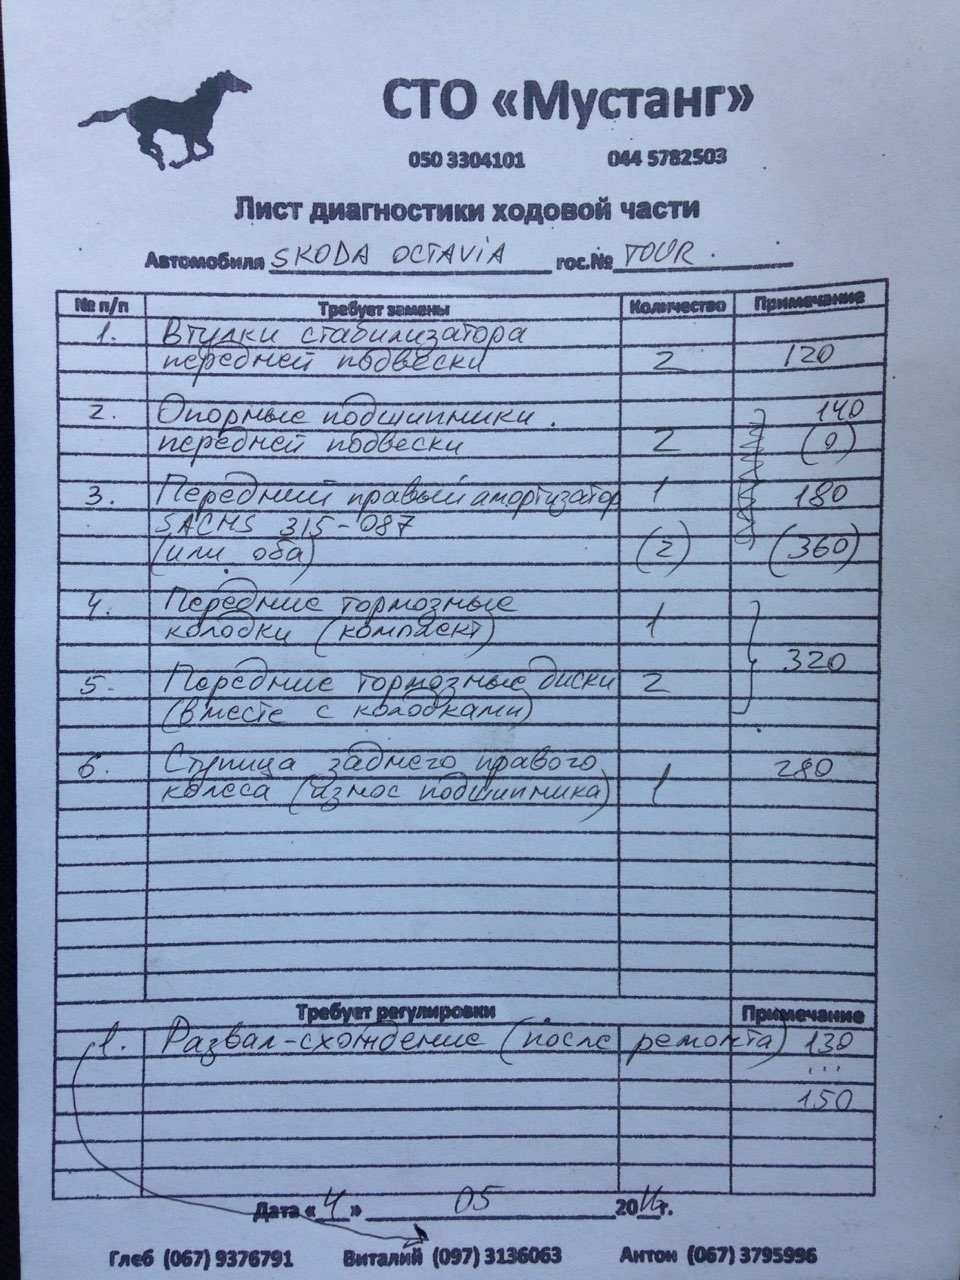 СТО «Мустанг»
050 3304101 044 5782503
Лист диагностики ходовой части
Автомобиля SKODA OCTAVIA гос.№ TOUR.
№ п/п Требует замены Количество Примечание
1. Втулки стабилизатора
передней подвески 2 120
2. Опорные подшипники. 140
передней подвески 2
3. Передний правый амортизатор 1 180
SACHS 315-087
(или оба) (2) (360)
4. Передние тормозные
колодки (комплект) 1
320
5. Передние тормозные диски 2
(вместе с колодками)
6. Ступица заднего правого 280
колеса (износ подшипника) 1
Требует регулировки Примечание
1. Развал-схождение (после ремонта) 130
...
150
Дата «4» 05 20 г.
Глеб (067) 9376791 Виталий (097) 3136063 Антон (067) 3795996